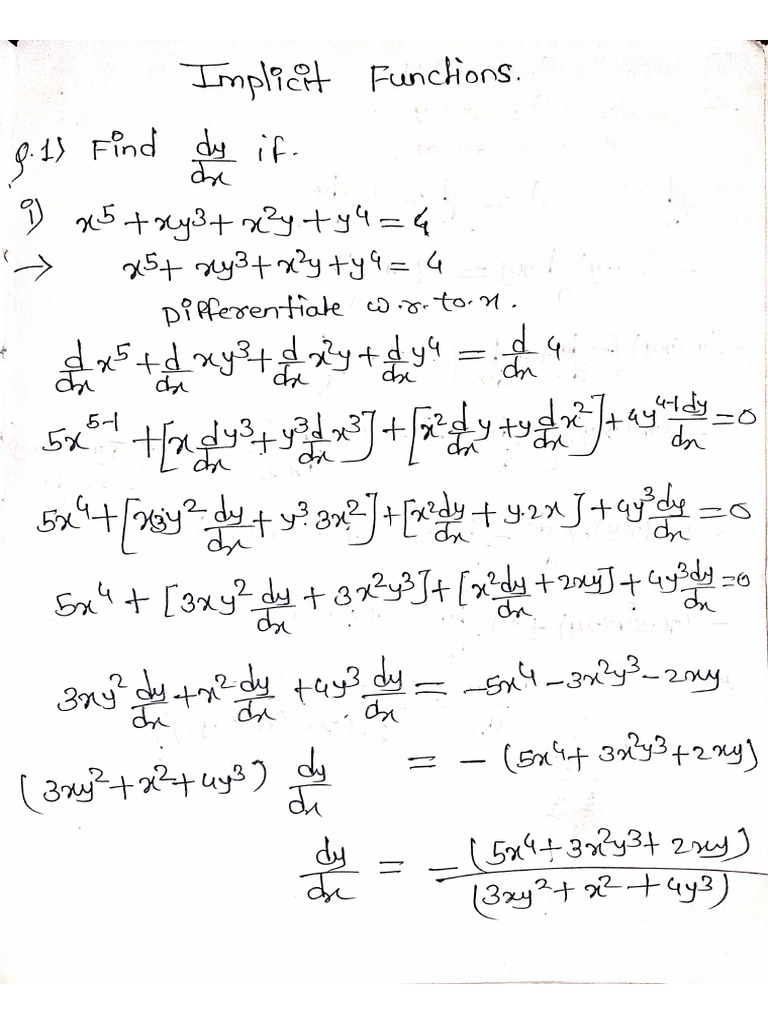 Implicit Functions.
Q.1) Find dy/dx if.
i) x⁵ + xy³ + x²y + y⁴ = 4
→ x⁵ + xy³ + x²y + y⁴ = 4
Differentiate w.r.to.x.
d/dx x⁵ + d/dx xy³ + d/dx x²y + d/dx y⁴ = d/dx 4
5x⁵⁻¹ + [x dy³/dx + y³ d/dx x³] + [x² d/dx y + y d/dx x²] + 4y⁴⁻¹ dy/dx = 0
5x⁴ + [x3y² dy/dx + y³ 3x²] + [x² dy/dx + y.2x] + 4y³ dy/dx = 0
5x⁴ + [3xy² dy/dx + 3x²y³] + [x² dy/dx + 2xy] + 4y³ dy/dx = 0
3xy² dy/dx + x² dy/dx + 4y³ dy/dx = -5x⁴ - 3x²y³ - 2xy
(3xy² + x² + 4y³) dy/dx = - (5x⁴ + 3x²y³ + 2xy)
dy/dx = -(5x⁴ + 3x²y³ + 2xy)/(3xy² + x² + 4y³)